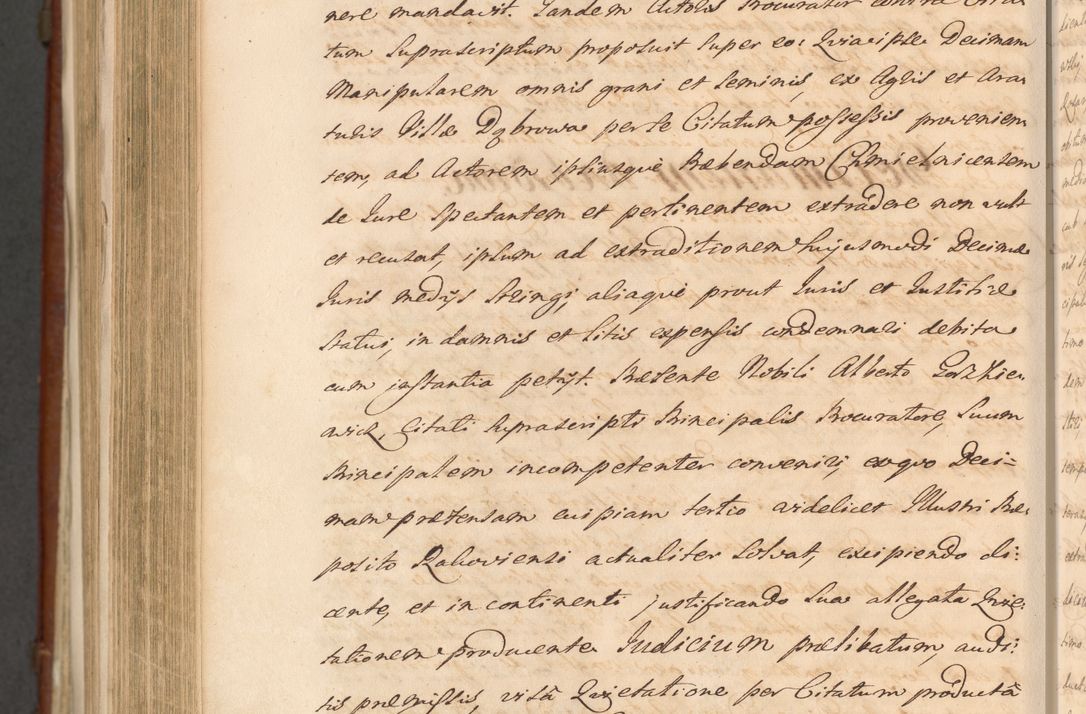 nere mandavit. Tandem Actoris Procurator contra Cita-
tum Suprascriptum proposuit super eo: Quia ipse Decimam
Manipularem omnis grani et seminis, ex Agris et Ara-
turis Villæ Dąbrowa per se Citatum possessis provenien-
tem, ad Actorem ipsiusque Præbendam Chmielnicensem
de Jure spectantem et pertinentem extradere non vult
et recusat, ipsum ad extraditionem hujusmodi Decimæ
Juris medijs stringi, aliaque prout Juris et Justitiæ
statui, in damnis et litis expensis condemnari debita
cum instantia petijt. Præsente Nobili Alberto Gorzkie-
wicz, Citati suprascripti Principalis Procuratore, Suum
Principalem incompetenter conveniri, ex quo Deci=
mam prætensam cuipiam tertio videlicet Illustri Præ-
posito Rakoviensi actualiter solvat, excipiendo di-
cente, et in continenti justificando sua allegata Quie-
tationem producente Judicium prælibatum, audi-
tis præmissis, visâ Quietatione per Citatum productâ